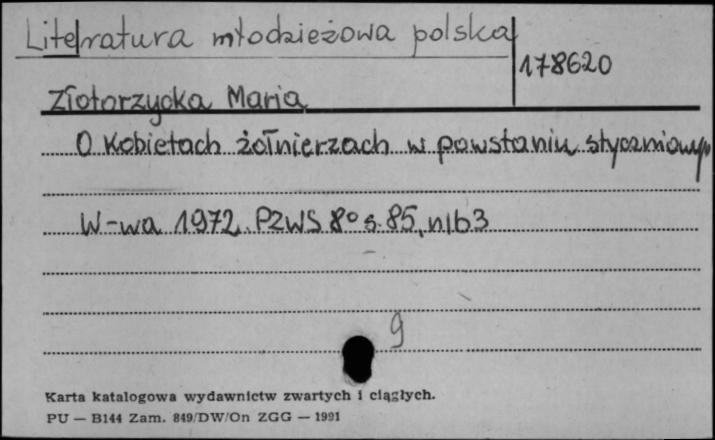 Literatura młodzieżowa polska
178620
Złotorzycka Maria
O Kobietach żołnierzach w powstaniu styczniowym
W-wa 1972. PZWS 8° s. 85, nlb 3
9
Karta katalogowa wydawnictw zwartych i ciągłych.
PU — B144 Zam. 849/DW/On ZGG — 1991